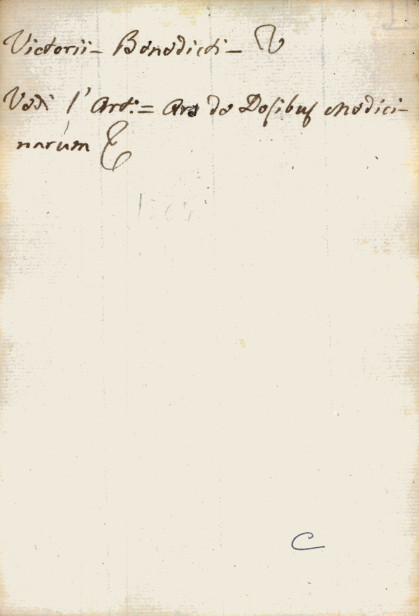 Victorii - Benedicti - V
Vedi l' Art: = Ars de Dosibus Medici-
narum E
C